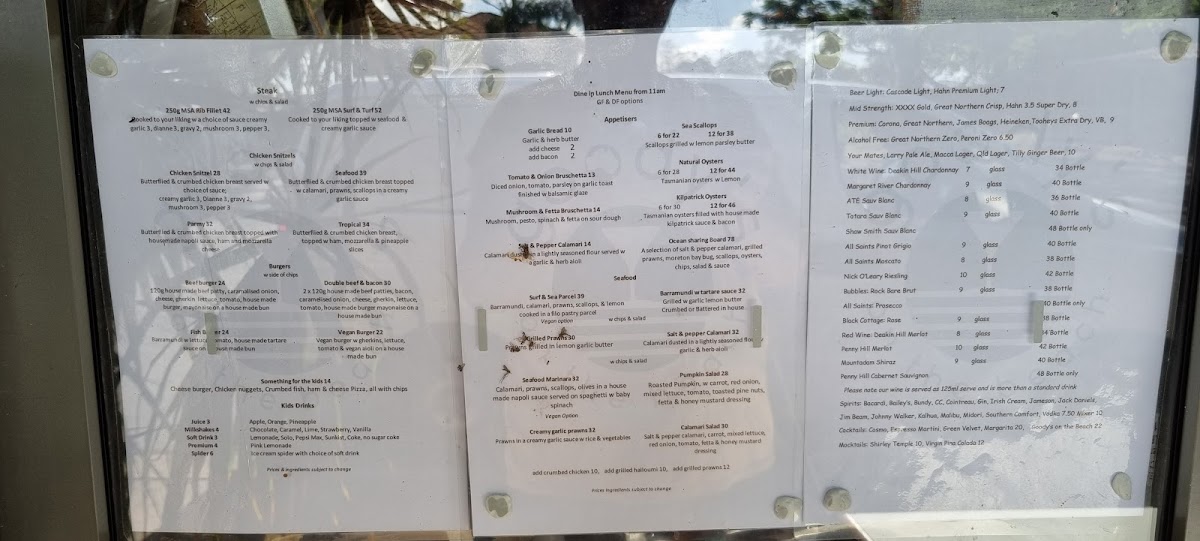 Steak
w chips & salad
250g MSA Rib Fillet 42
Cooked to your liking w a choice of sauce creamy
garlic 3, dianne 3, gravy 2, mushroom 3, pepper 3,
250g MSA Surf & Turf 52
Cooked to your liking topped w seafood &
creamy garlic sauce
Chicken Snitzels
w chips & salad
Chicken Snitzel 28
Butterflied & crumbed chicken breast served w
choice of sauce;
creamy garlic 3, Dianne 3, gravy 2,
mushroom 3, pepper 3
Seafood 39
Butterflied & crumbed chicken breast topped
w calamari, prawns, scallops in a creamy
garlic sauce
Parmy 32
Butterflied & crumbed chicken breast topped with
housemade napoli sauce, ham and mozzarella
cheese
Tropical 34
Butterflied & crumbed chicken breast,
topped w ham, mozzarella & pineapple
slices
Burgers
w side of chips
Beef burger 24
120g house made beef patty, caramalised onion,
cheese, gherkin, lettuce, tomato, house made
burger, mayonaise on a house made bun
Double beef & bacon 30
2 x 120g house made beef patties, bacon,
caramalised onion, cheese, gherkin, lettuce,
tomato, house made burger mayonaise on a
house made bun
Fish Burger 24
Barramundi w lettuce, tomato, house made tartare
sauce on house made bun
Vegan Burger 22
Vegan burger w gherkins, lettuce,
tomato & vegan aioli on a house
made bun
Something for the kids 14
Cheese burger, Chicken nuggets, Crumbed fish, ham & cheese Pizza, all with chips
Kids Drinks
Juice 3 Apple, Orange, Pineapple
Milkshakes 4 Chocolate, Caramel, Lime, Strawberry, Vanilla
Soft Drink 3 Lemonade, Solo, Pepsi Max, Sunkist, Coke, no sugar coke
Premium 4 Pink Lemonade
Spider 6 Ice cream spider with choice of soft drink
Prices & ingredients subject to change
Dine in Lunch Menu from 11am
GF & DF options
Appetisers
Garlic Bread 10
Garlic & herb butter
add cheese 2
add bacon 2
Sea Scallops
6 for 22 12 for 38
Scallops grilled w lemon parsley butter
Tomato & Onion Bruschetta 13
Diced onion, tomato, parsley on garlic toast
finished w balsamic glaze
Natural Oysters
6 for 28 12 for 44
Tasmanian oysters w Lemon
Mushroom & Fetta Bruschetta 14
Mushroom, pesto, spinach & fetta on sour dough
Kilpatrick Oysters
6 for 30 12 for 46
Tasmanian oysters filled with house made
kilpatrick sauce & bacon
Salt & Pepper Calamari 14
Calamari dusted in a lightly seasoned flour served w
garlic & herb aioli
Ocean sharing Board 78
A selection of salt & pepper calamari, grilled
prawns, moreton bay bug, scallops, oysters,
chips, salad & sauce
Seafood
Surf & Sea Parcel 39
Barramundi, calamari, prawns, scallops, & lemon
cooked in a filo pastry parcel
Vegan option
w chips & salad
Barramundi w tartare sauce 32
Grilled w garlic lemon butter
Crumbed or Battered in house
Grilled Prawns 30
Prawns grilled in lemon garlic butter
w chips & salad
Salt & pepper Calamari 32
Calamari dusted in a lightly seasoned flour
garlic & herb aioli
Seafood Marinara 33
Calamari, prawns, scallops, olives in a house
made napoli sauce served on spaghetti w baby
spinach
Vegan Option
Pumpkin Salad 28
Roasted Pumpkin, w carrot, red onion,
mixed lettuce, tomato, toasted pine nuts,
fetta & honey mustard dressing
Creamy garlic prawns 32
Prawns in a creamy garlic sauce w rice & vegetables
Calamari Salad 30
Salt & pepper calamari, carrot, mixed lettuce,
red onion, tomato, fetta & honey mustard
dressing
add crumbed chicken 10, add grilled halloumi 10, add grilled prawns 12
Prices ingredients subject to change
Beer Light: Cascade Light, Hahn Premium Light; 7
Mid Strength: XXXX Gold, Great Northern Crisp, Hahn 3.5 Super Dry, 8
Premium: Corona, Great Northern, James Boags, Heineken, Tooheys Extra Dry, VB, 9
Alcohol Free: Great Northern Zero, Peroni Zero 6.50
Your Mates, Larry Pale Ale, Macca Lager, Qld Lager, Tilly Ginger Beer, 10
White Wine: Deakin Hill Chardonnay 7 glass 34 Bottle
Margaret River Chardonnay 9 glass 40 Bottle
ATE Sauv Blanc 8 glass 36 Bottle
Totara Sauv Blanc 9 glass 40 Bottle
Shaw Smith Sauv Blanc 48 Bottle only
All Saints Pinot Grigio 9 glass 40 Bottle
All Saints Moscato 8 glass 38 Bottle
Nick O'Leary Riesling 10 glass 42 Bottle
Bubbles: Rock Bare Brut 9 glass 38 Bottle
All Saints: Prosecco 40 Bottle only
Black Cottage: Rose 9 glass 38 Bottle
Red Wine: Deakin Hill Merlot 8 glass 34 Bottle
Penny Hill Merlot 10 glass 42 Bottle
Mountadam Shiraz 9 glass 40 Bottle
Penny Hill Cabernet Sauvignon 48 Bottle only
Please note our wine is served as 125ml serve and is more than a standard drink
Spirits: Bacardi, Bailey's, Bundy, CC, Cointreau, Gin, Irish Cream, Jameson, Jack Daniels,
Jim Beam, Johnny Walker, Kalhua, Malibu, Midori, Southern Comfort, Vodka 7.50 Mixer 10
Cocktails: Cosmo, Espresso Martini, Green Velvet, Margarita 20, Goody's on the Beach 22
Mocktails: Shirley Temple 10, Virgin Pina Colada 12